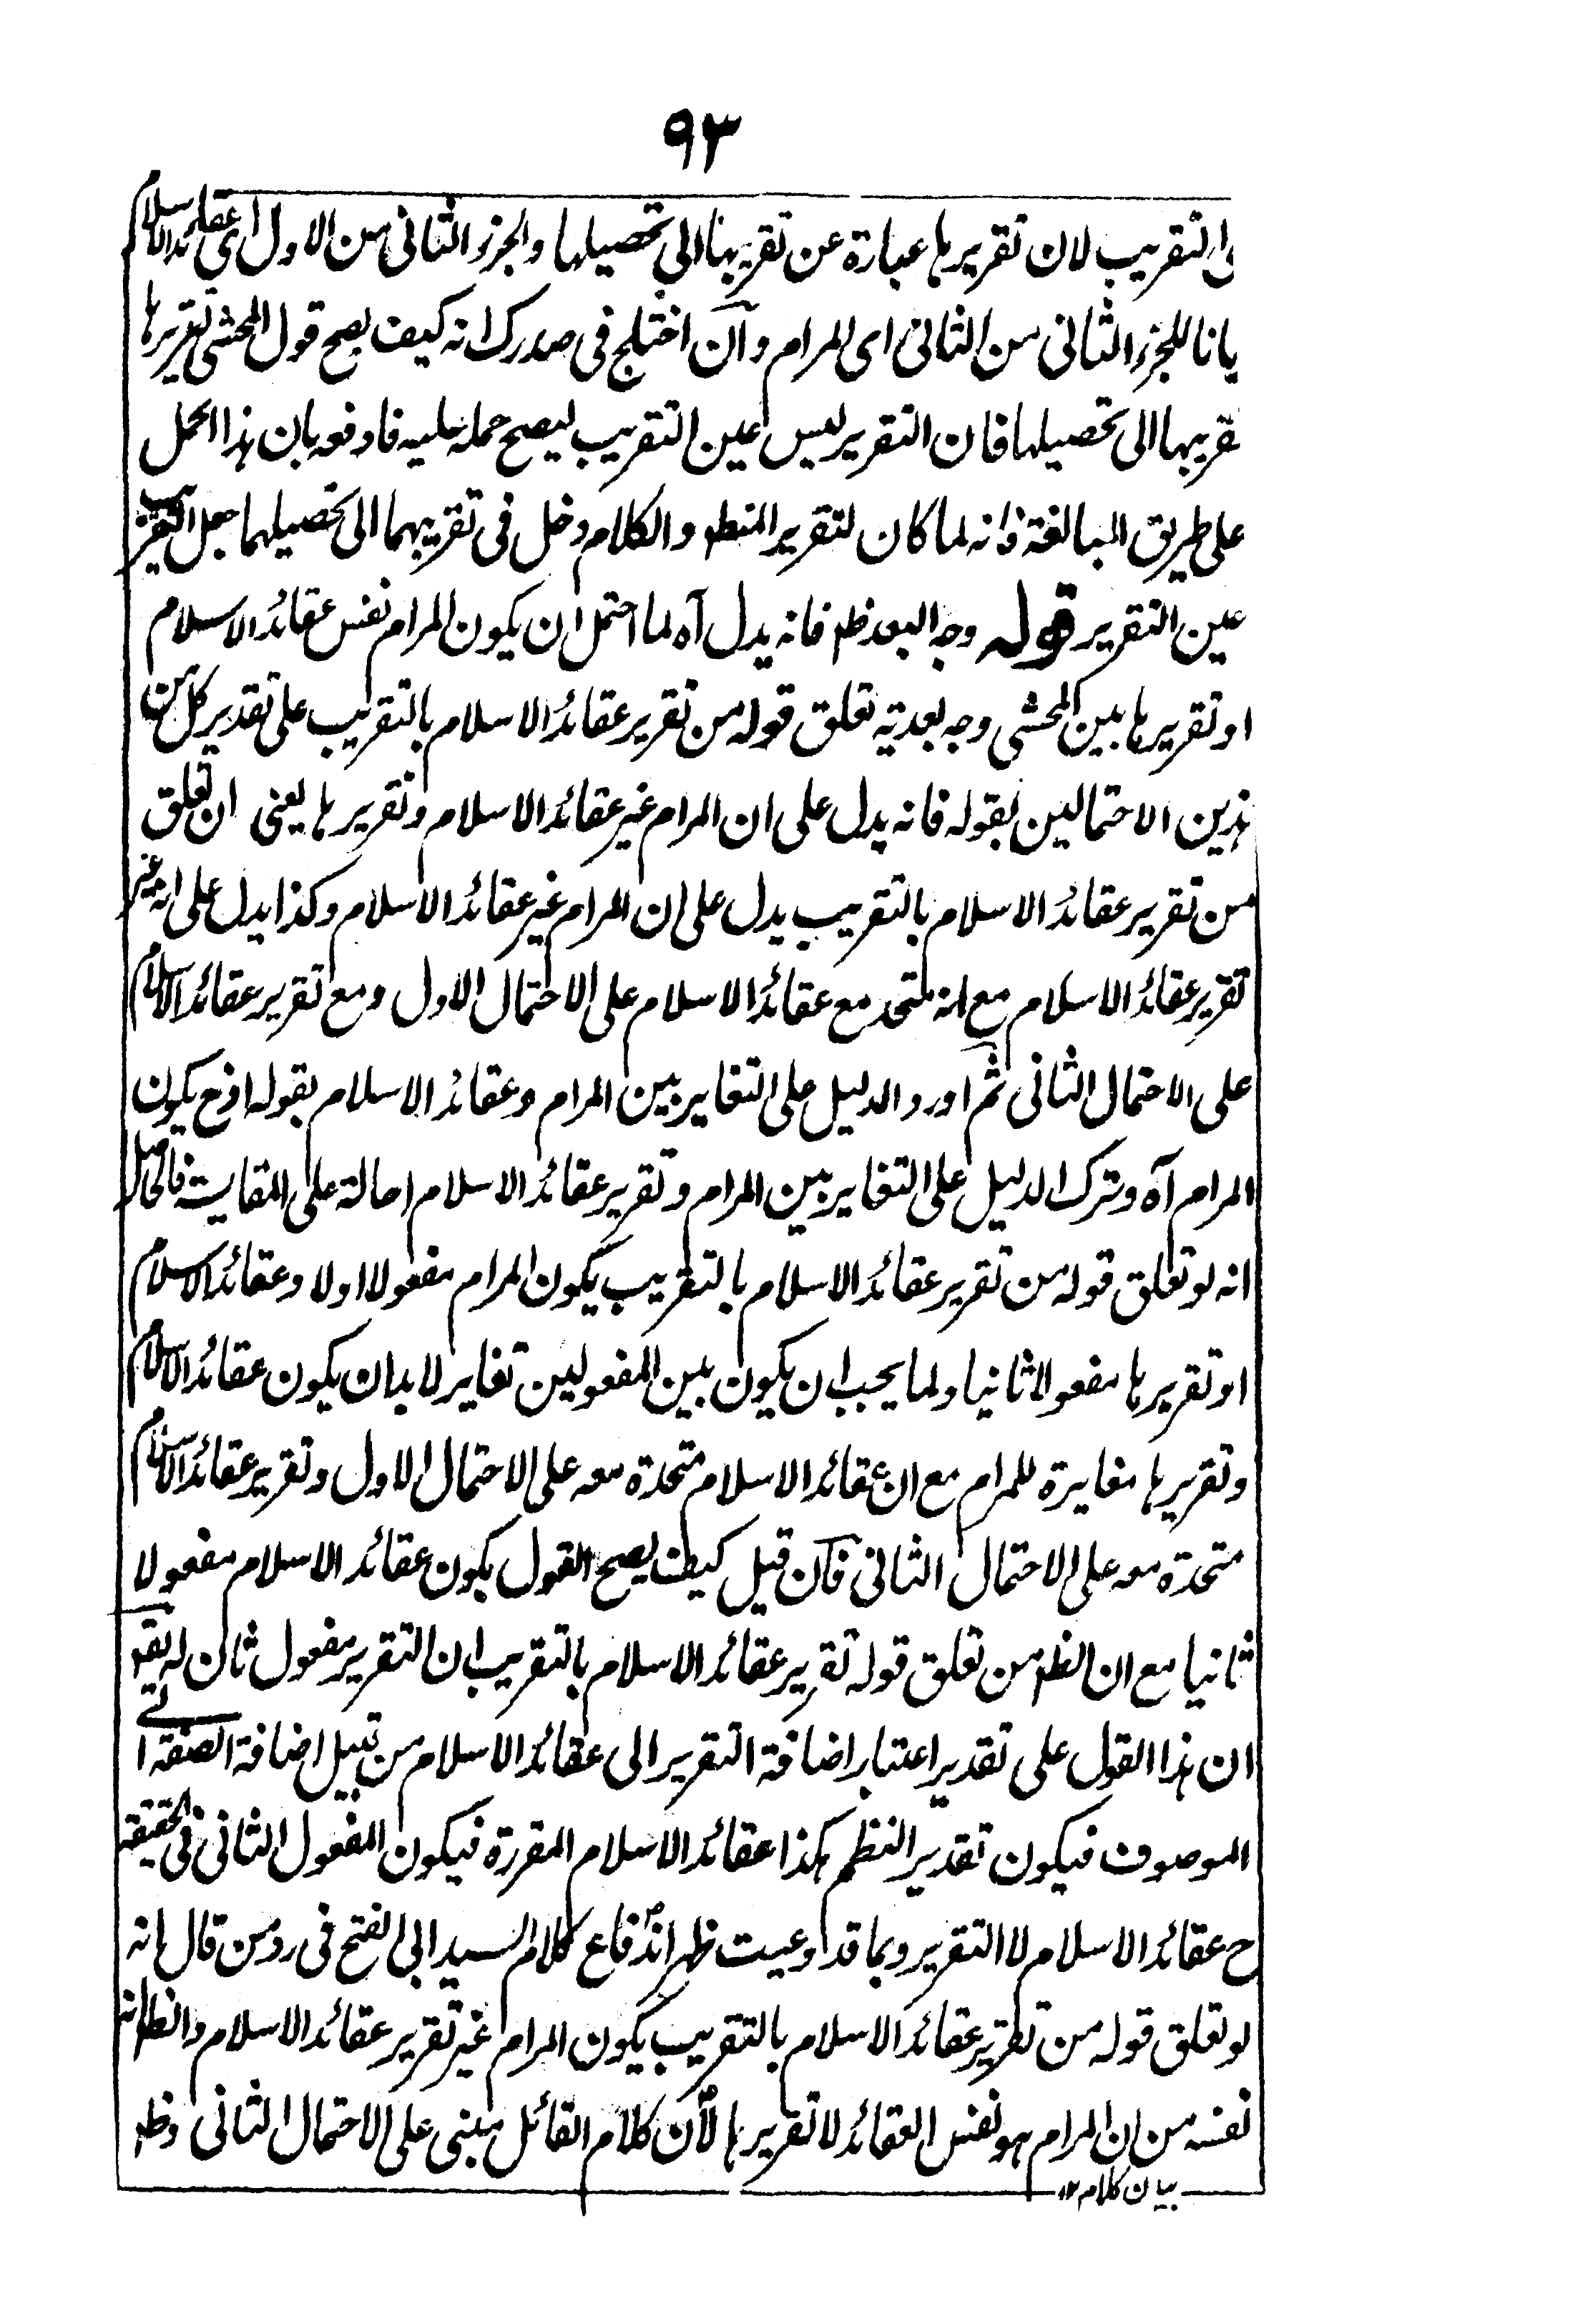 ٩٣
التقريب لان تقريرها عبارة عن تقريبها الى تحصيلها والجزء الثانى من الاول اى عقائد الاسلام
يانا للجزء الثانى من الثانى اى المرام وان اختلج فى صدرك انه كيف يصح قول المحشى تقريرها
تقريبها الى تحصيلها فان التقرير ليس عين التقريب ليصح حمله عليه فادفعه بان هذا الحمل
على طريق المبالغة فانه لما كان لتقرير المنطق والكلام دخل فى تقريبهما الى تحصيلهما جعل التقريب
عين التقرير قوله وجه البعد ظ فانه يدل آه لما احتمل ان يكون المرام نفس عقائد الاسلام
او تقريرها بين المحشى وجه بعدية تعلق قوله من تقرير عقائد الاسلام بالتقريب على تقدير كل من
هذين الاحتمالين بقوله فانه يدل على ان المرام غير عقائد الاسلام وتقريرها يعنى ان تعلق
من تقرير عقائد الاسلام بالتقريب يدل على ان المرام غير عقائد الاسلام وكذا يدل على انه غير
تقرير عقائد الاسلام مع انه متحد مع عقائد الاسلام على الاحتمال الاول ومع تقرير عقائد الاسلام
على الاحتمال الثانى ثم اورد الدليل على التغاير بين المرام وعقائد الاسلام بقوله اذ ح يكون
المرام آه وترك الدليل على التغاير بين المرام وتقرير عقائد الاسلام احالة على المقايسة فالحاصل
انه لو تعلق قوله من تقرير عقائد الاسلام بالتقريب يكون المرام مفعولا اولا وعقائد الاسلام
او تقريرها مفعولا ثانيا ولما يجب ان يكون بين المفعولين تغاير لا بد ان يكون عقائد الاسلام
وتقريرها مغايرة للمرام مع ان عقائد الاسلام متحدة معه على الاحتمال الاول وتقرير عقائد الاسلام
متحدة معه على الاحتمال الثانى فان قيل كيف يصح القول بكون عقائد الاسلام مفعولا
ثانيا مع ان الظ من تعلق قوله تقرير عقائد الاسلام بالتقريب ان التقرير مفعول ثان له يقو
ان هذا القول على تقدير اعتبار اضافة التقرير الى عقائد الاسلام من قبيل اضافة الصفة الى
الموصوف فيكون تقدير النظم هكذا عقائد الاسلام المقررة فيكون المفعول الثانى فى الحقيقة
ح عقائد الاسلام لا التقرير وبما قد وعيت ظهر اندفاع كلام السيد ابى الفتح فى رد من قال انه
لو تعلق قوله من تقرير عقائد الاسلام بالتقريب يكون المرام غير تقرير عقائد الاسلام والظ انه
نفسه من ان المرام هو نفس العقائد لا تقريرها لان كلام القائل مبنى على الاحتمال الثانى وظ
بيان كلام ١٢